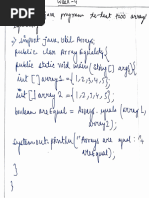 week-4
java program to test two array
> import java.util.Arrays
public class ArrayEquality {
public static void main (String [] args) {
int [] array 1 = {1,2,3,4,5};
int [] array 2 = {1,2,3,4,5};
boolean areEqual = Arrays.equals (array 1,
array 2);
system.out.println ("Arrays are equal : "+
areEqual);
}
}